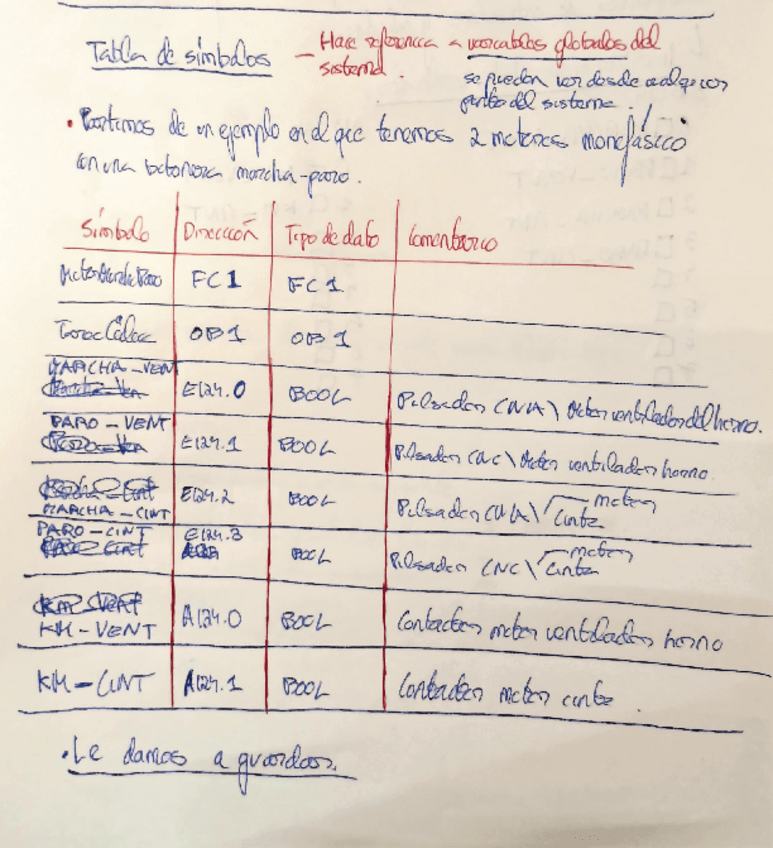 Tabla de símbolos – Hace referencia a variables globales del
sistema.
se pueden ver desde cualquier
parte del sistema.
• Partimos de un ejemplo en el que tenemos 2 motores monofásico
con una botonera marcha-paro.
Símbolo Dirección Tipo de dato Comentario
FC1 FC1
OB1 OB1
MARCHA-VENT E124.0 BOOL Pulsador (NA\ Motor ventilador del horno.
PARO-VENT E124.1 BOOL Pulsador (NC\ Motor ventilador horno.
MARCHA-CINT E124.2 BOOL Pulsador (NA\ motor cinta
PARO-CINT E124.3 BOOL Pulsador (NC\ motor cinta
KM-VENT A124.0 BOOL Contactor motor ventilador horno
KM-CINT A124.1 BOOL Contactor motor cinta.
• Le damos a guardar.